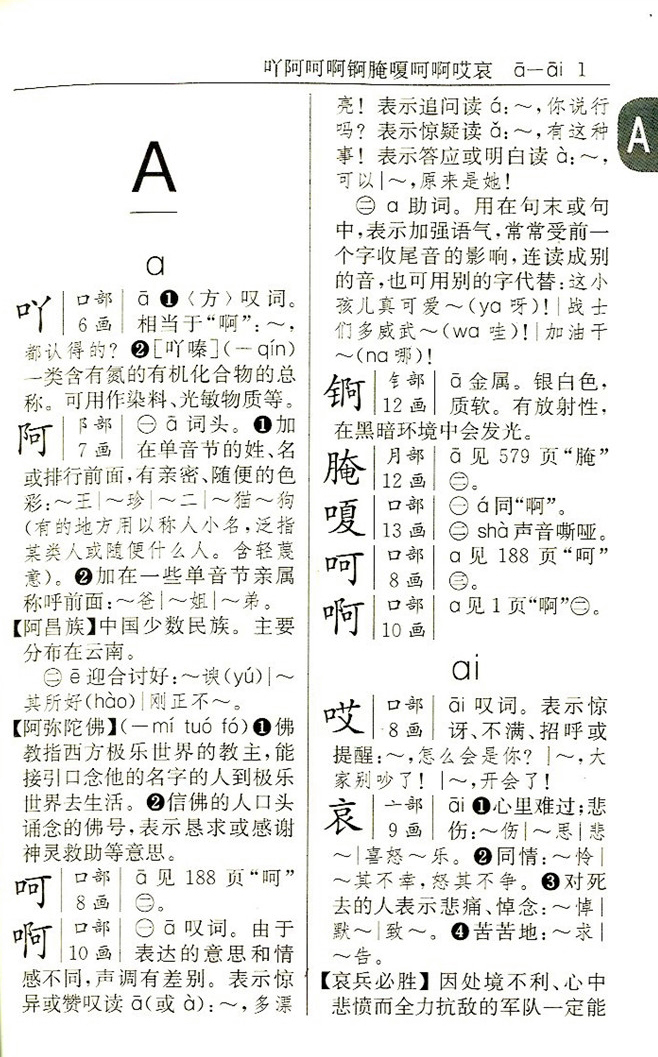 吖阿呵啊锕腌嗄呵啊哎哀 ā—āi 1
A
A
ɑ
吖 口部 6画 ā❶〈方〉叹词。
相当于“啊”:～,
都认得的?❷[吖嗪](—qín)
一类含有氮的有机化合物的总
称。可用作染料、光敏物质等。
阿 阝部 7画 ㊀ā词头。❶加
在单音节的姓、名
或排行前面,有亲密、随便的色
彩:～王|～珍|～二|～猫～狗
(有的地方用以称人小名,泛指
某类人或随便什么人。含轻蔑
意)。❷加在一些单音节亲属
称呼前面:～爸|～姐|～弟。
【阿昌族】中国少数民族。主要
分布在云南。
㊁ē迎合讨好:～谀(yú)|～
其所好(hào)|刚正不～。
【阿弥陀佛】(—mí tuó fó)❶佛
教指西方极乐世界的教主,能
接引口念他的名字的人到极乐
世界去生活。❷信佛的人口头
诵念的佛号,表示恳求或感谢
神灵救助等意思。
呵 口部 8画 ā见188页“呵”
㊁。
啊 口部 10画 ㊀ā叹词。由于
表达的意思和情
感不同,声调有差别。表示惊
异或赞叹读ā(或à):～,多漂
亮!表示追问读á:～,你说行
吗?表示惊疑读ǎ:～,有这种
事!表示答应或明白读à:～,
可以|～,原来是她!
㊁ɑ助词。用在句末或句
中,表示加强语气,常常受前一
个字收尾音的影响,连读成别
的音,也可用别的字代替:这小
孩儿真可爱～(yɑ呀)!|战士
们多威武～(wɑ哇)!|加油干
～(nɑ哪)!
锕 钅部 12画 ā金属。银白色,
质软。有放射性,
在黑暗环境中会发光。
腌 月部 12画 ā见579页“腌”
㊁。
嗄 口部 13画 ㊀á同“啊”。
㊁shà声音嘶哑。
呵 口部 8画 ɑ见188页“呵”
㊂。
啊 口部 10画 ɑ见1页“啊”㊁。
ɑi
哎 口部 8画 āi叹词。表示惊
讶、不满、招呼或
提醒:～,怎么会是你?|～,大
家别吵了!|～,开会了!
哀 亠部 9画 āi❶心里难过;悲
伤:～伤|～思|悲
～|喜怒～乐。❷同情:～怜|
～其不幸,怒其不争。❸对死
去的人表示悲痛、悼念:～悼|
默～|致～。❹苦苦地:～求|
～告。
【哀兵必胜】因处境不利、心中
悲愤而全力抗敌的军队一定能